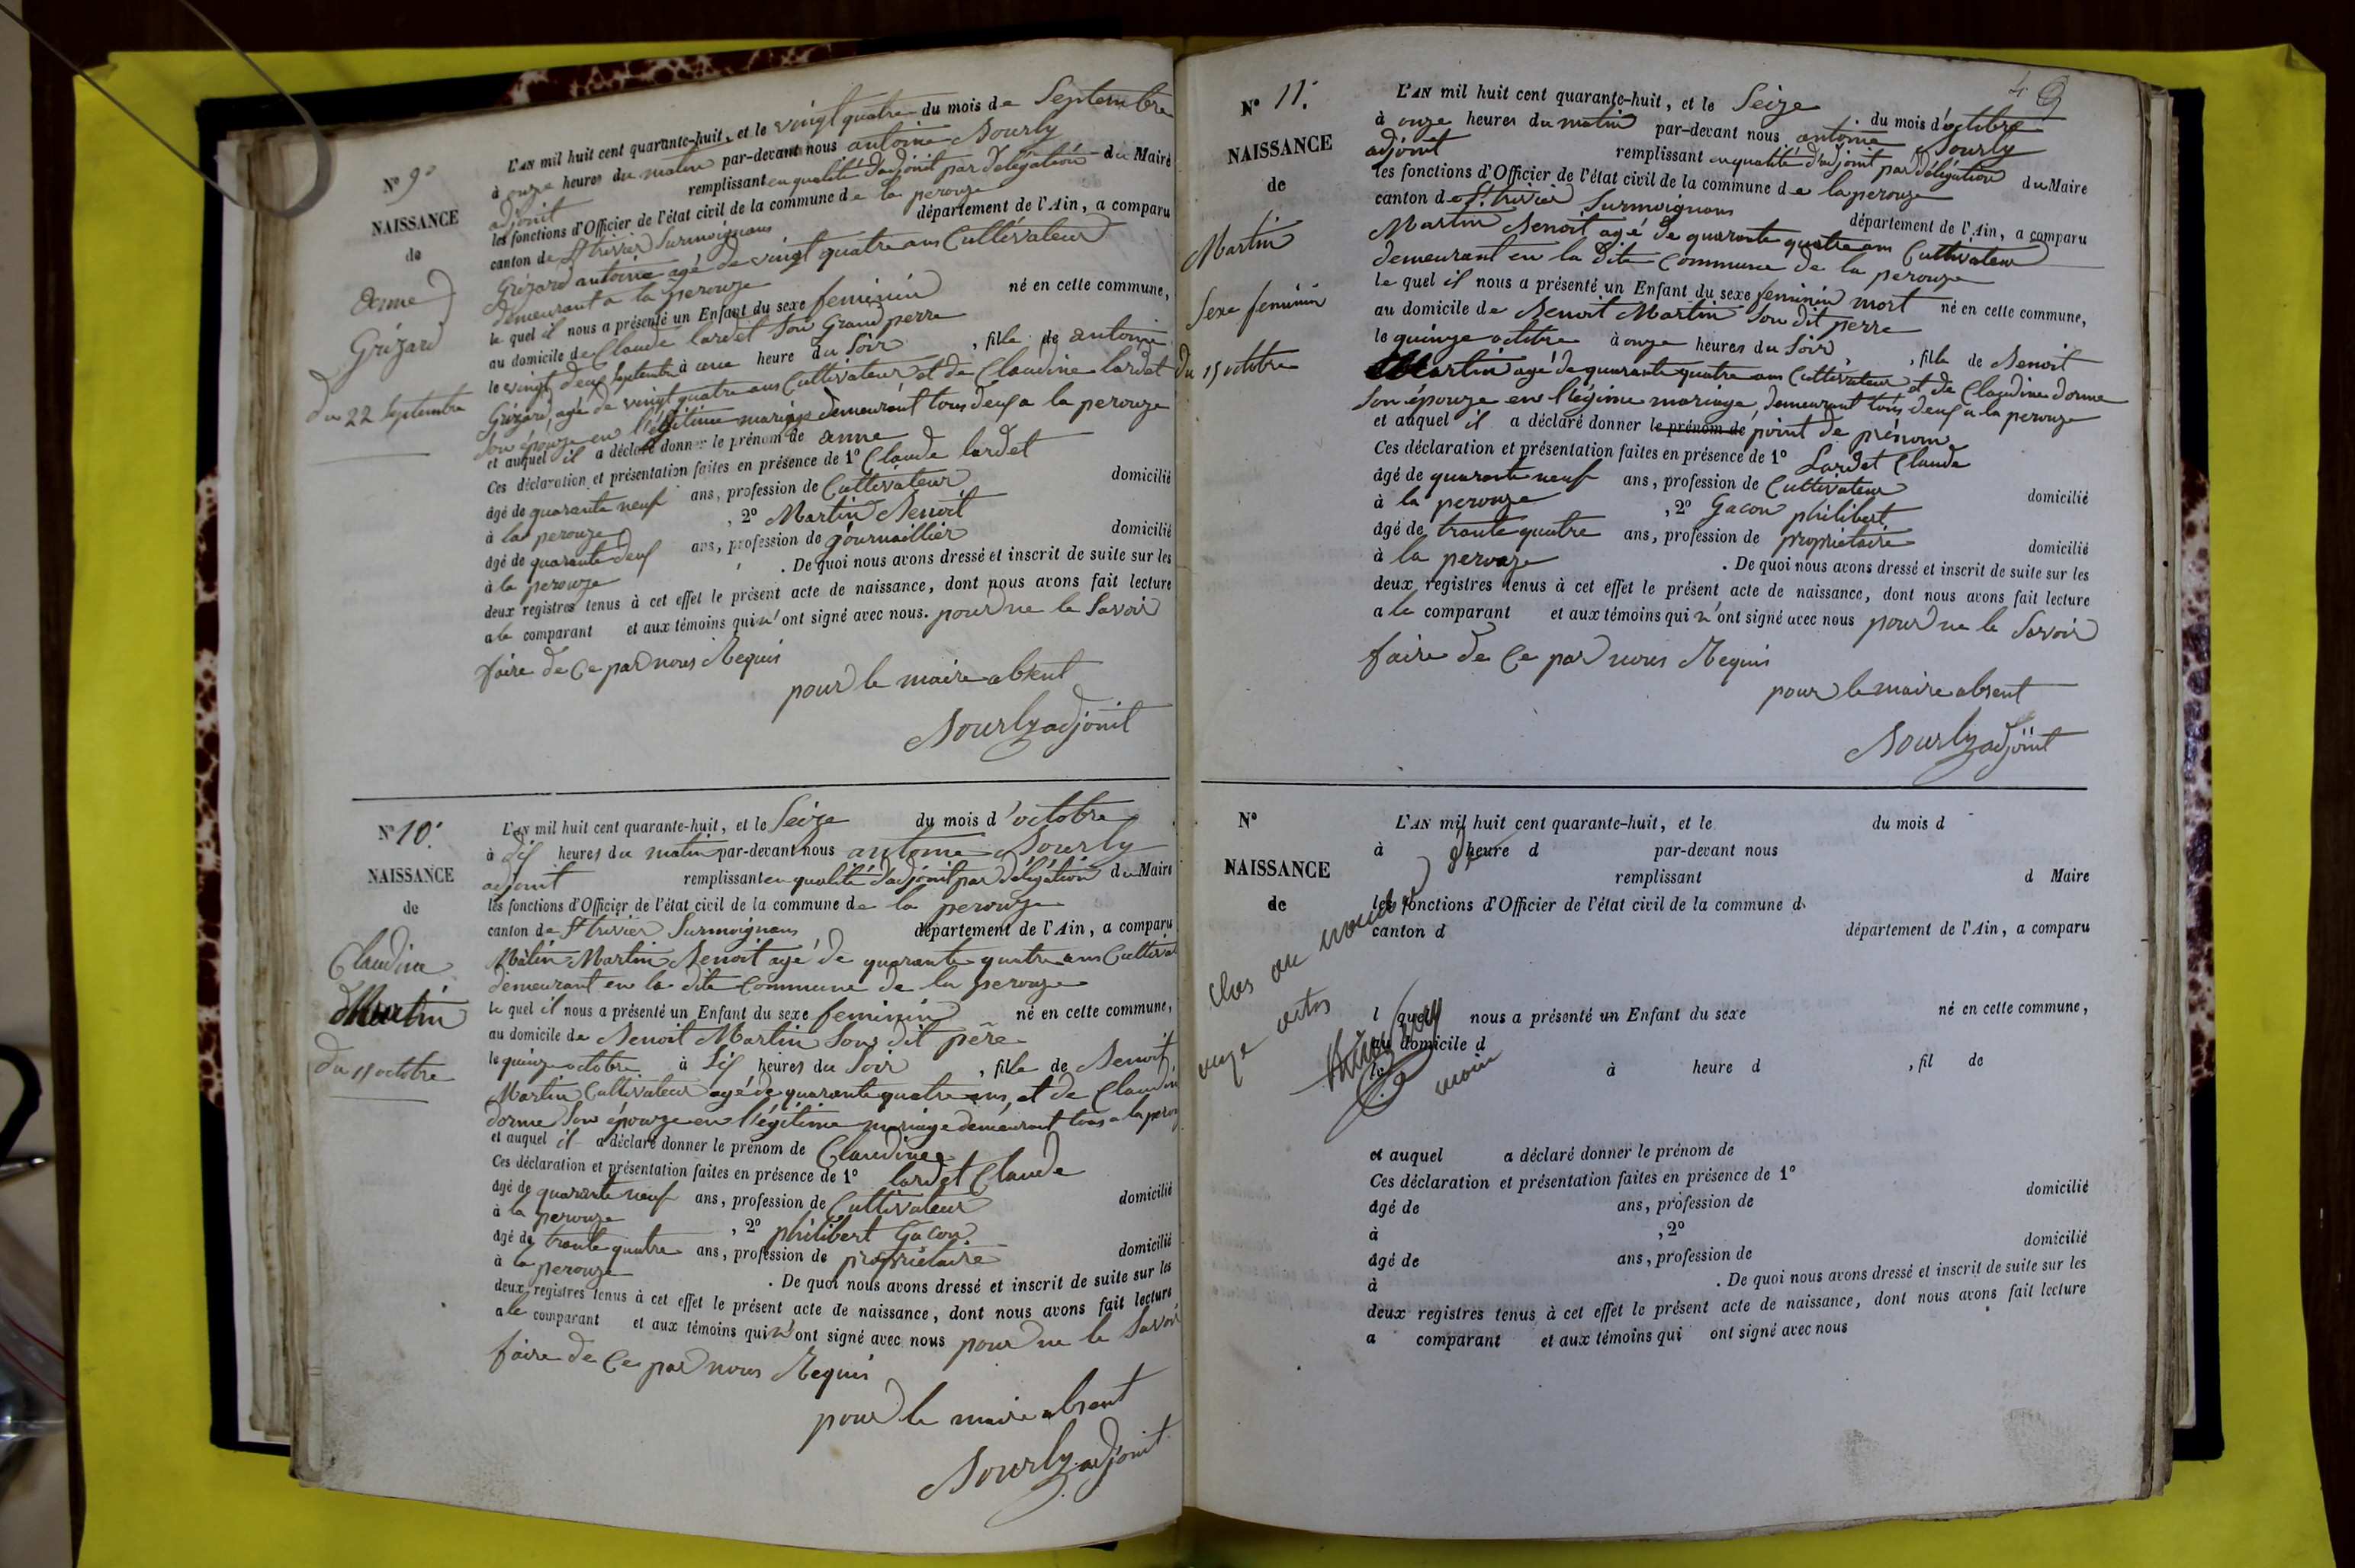 N° 9.
NAISSANCE
de
anne
Grizard
du 22 Septembre
L'AN mil huit cent quarante-huit, et le vingt quatre du mois de Septembre
à onze heures du matin par-devant nous antoine Sourly
adjoint remplissant en qualité d'adjoint par délégation du Maire
les fonctions d'Officier de l'état civil de la commune de la perouze
canton de St trivier Surmoignans département de l'Ain, a comparu
Grizard antoine agé de vingt quatre ans Cultivateur
demeurant a la perouze
le quel il nous a présenté un Enfant du sexe feminin né en cette commune,
au domicile de Claude lardet Son Grand perre
le vingt deux Septembre à une heure du Soir, fille de antoine
Grizard, agé de vingt quatre ans Cultivateur et de Claudine lardet
Son épouze en l'égitime mariage demeurant tous deux a la perouze
et auquel il a déclaré donner le prénom de anne
Ces déclaration et présentation faites en présence de 1° Claude lardet
âgé de quarante neuf ans, profession de Cultivateur domicilié
à la perouze, 2° Martin Benoit
âgé de quarante deux ans, profession de journaillier domicilié
à la perouze. De quoi nous avons dressé et inscrit de suite sur les
deux registres tenus à cet effet le présent acte de naissance, dont nous avons fait lecture
a le comparant et aux témoins qui n'ont signé avec nous. pour ne le Savoir
faire de Ce par nous Requis
pour le maire absent
Sourly adjoint
N° 10.
NAISSANCE
de
Claudine
Martin
du 15 octobre
L'AN mil huit cent quarante-huit, et le Seize du mois d'octobre
à dix heures du matin par-devant nous antoine Sourly
adjoint remplissant en qualité d'adjoint par délégation du Maire
les fonctions d'Officier de l'état civil de la commune de la perouze
canton de St trivier Surmoignans département de l'Ain, a comparu
Martin Benoit agé de quarante quatre ans Cultivat
demeurant en la dite Commune de la perouze
le quel il nous a présenté un Enfant du sexe feminin né en cette commune,
au domicile de Benoit Martin Sous dit père
le quinze octobre à dix heures du Soir, fille de Benoit
Martin Cultivateur agé de quarante quatre ans, et de Claudine
dorme Son épouze en l'égitime mariage demeurant tous a la perouz
et auquel il a déclaré donner le prénom de Claudine
Ces déclaration et présentation faites en présence de 1° lardet Claude
âgé de quarante neuf ans, profession de Cultivateur domicilié
à la perouze, 2° philibert Gacon
âgé de trante quatre ans, profession de propriétaire domicilié
à la perouze. De quoi nous avons dressé et inscrit de suite sur les
deux registres tenus à cet effet le présent acte de naissance, dont nous avons fait lecture
a le comparant et aux témoins qui n'ont signé avec nous pour ne le Savoir
faire de Ce par nous Requis
pour le maire absent
Sourly adjoint
49
N° 11.
NAISSANCE
de
Martin
Sexe feminin
du 15 octobre
L'AN mil huit cent quarante-huit, et le Seize du mois d'octobre
à onze heures du matin par-devant nous antoine Sourly
adjoint remplissant en qualité d'adjoint par délégation du Maire
les fonctions d'Officier de l'état civil de la commune de la perouze
canton de St. trivier Surmoignans département de l'Ain, a comparu
Martin Benoit agé de quarante quatre ans Cultivateur
demeurant en la dite Commune de la perouze
le quel il nous a présenté un Enfant du sexe feminin mort né en cette commune,
au domicile de Benoit Martin Son dit perre
le quinze octobre à onze heures du Soir, fille de Benoit
Martin agé de quarante quatre ans Cultivateur et de Claudine dorme
Son épouze en l'égime mariage, demeurant tous deux a la perouze
et auquel il a déclaré donner le prénom de point de prénom
Ces déclaration et présentation faites en présence de 1° Lardet Claude
âgé de quarante neuf ans, profession de Cultivateur domicilié
à la perouze, 2° Gacon philibert
âgé de trante quatre ans, profession de propriétaire domicilié
à la perouze. De quoi nous avons dressé et inscrit de suite sur les
deux registres tenus à cet effet le présent acte de naissance, dont nous avons fait lecture
a le comparant et aux témoins qui n'ont signé avec nous pour ne le Savoir
faire de Ce par nous Requis
pour le maire absent
Sourly adjoint
N°
NAISSANCE
de
L'AN mil huit cent quarante-huit, et le du mois d
à heure d par-devant nous
remplissant d Maire
les fonctions d'Officier de l'état civil de la commune d
canton d département de l'Ain, a comparu
clos au nombre de
onze actes
maire
l quel nous a présenté un Enfant du sexe né en cette commune,
au domicile d
le à heure d, fil de
et auquel a déclaré donner le prénom de
Ces déclaration et présentation faites en présence de 1°
âgé de ans, profession de domicilié
à, 2°
âgé de ans, profession de domicilié
à. De quoi nous avons dressé et inscrit de suite sur les
deux registres tenus à cet effet le présent acte de naissance, dont nous avons fait lecture
a comparant et aux témoins qui ont signé avec nous